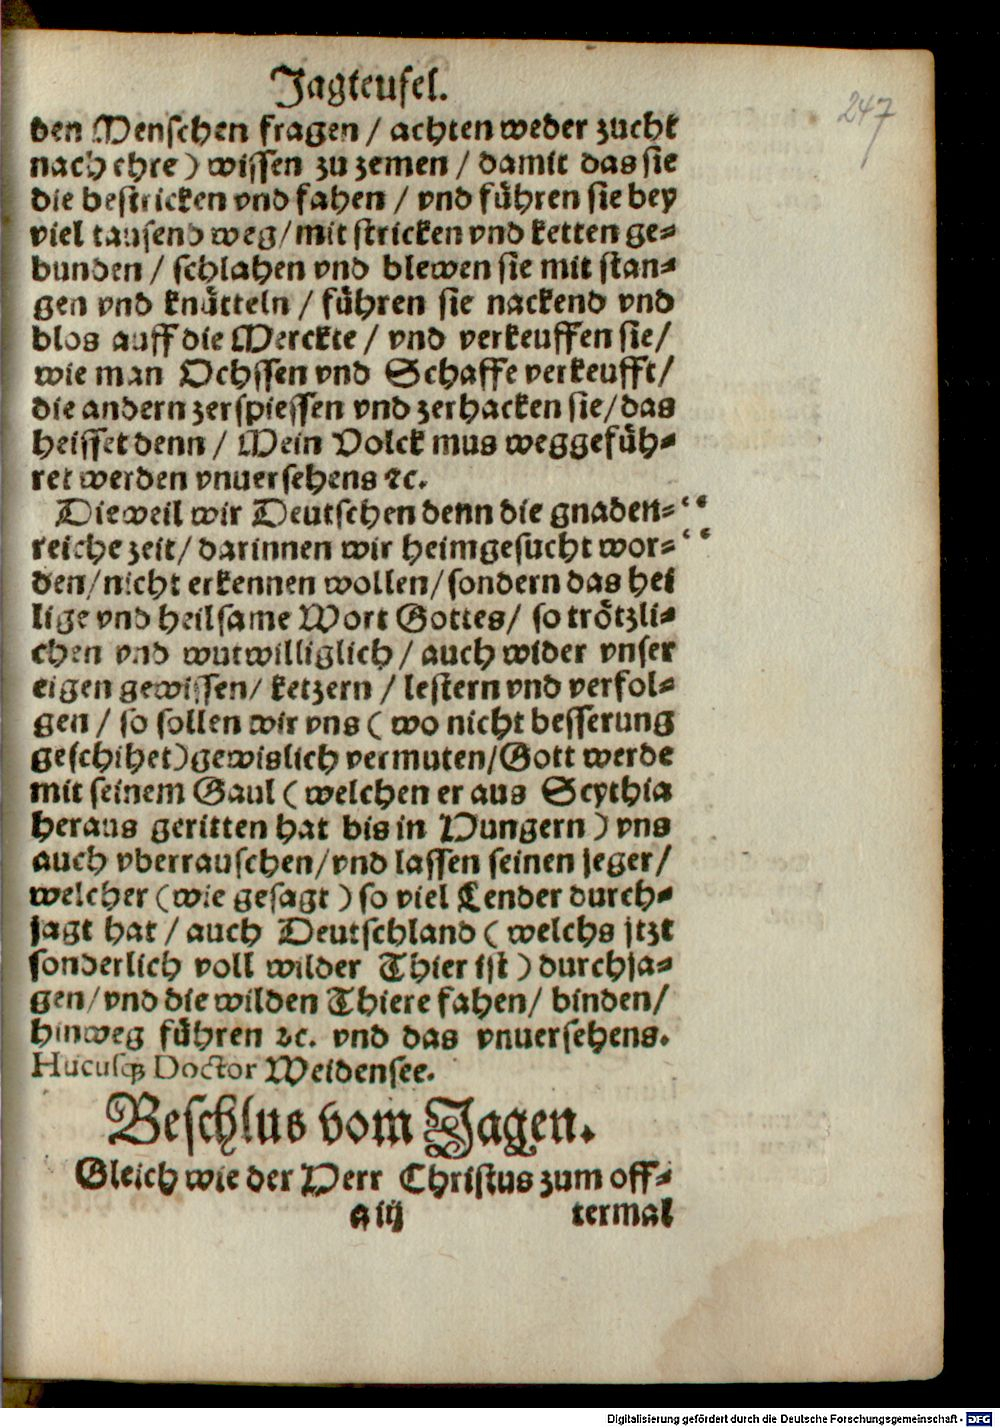 Jagteufel.
247
den Menschen fragen / achten weder zucht
nach ehre) wissen zu zemen / damit das sie
die bestricken vnd fahen / vnd führen sie bey
viel tausend weg/mit stricken vnd ketten ge⸗
bunden / schlahen vnd blewen sie mit stan⸗
gen vnd knütteln / führen sie nackend vnd
blos auff die Merckte / vnd verkeuffen sie/
wie man Ochssen vnd Schaffe verkeufft/
die andern zerspiessen vnd zerhacken sie/das
heisset denn / Mein Volck mus weggefüh⸗
ret werden vnuersehens ꝛc.
Dieweil wir Deutschen denn die gnaden⸗ “
reiche zeit/ darinnen wir heimgesucht wor⸗ “
den/nicht erkennen wollen/sondern das hei
lige vnd heilsame Wort Gottes/ so trötzli⸗
chen vnd wutwilliglich / auch wider vnser
eigen gewissen/ ketzern / lestern vnd verfol⸗
gen / so sollen wir vns ( wo nicht besserung
geschihet)gewislich vermuten/Gott werde
mit seinem Gaul ( welchen er aus Scythia
heraus geritten hat bis in Vungern ) vns
auch vberrauschen/vnd lassen seinen jeger/
welcher (wie gesagt ) so viel Lender durch⸗
jagt hat / auch Deutschland ( welchs jtzt
sonderlich voll wilder Thier ist ) durchja⸗
gen/vnd die wilden Thiere fahen/ binden/
hinweg führen ꝛc. vnd das vnuersehens.
Hucusq́ꝫ Doctor Weidensee.
Beschlus vom Jagen.
Gleich wie der Herr Christus zum off⸗
q iij termal
Digitalisierung gefördert durch die Deutsche Forschungsgemeinschaft - DFG